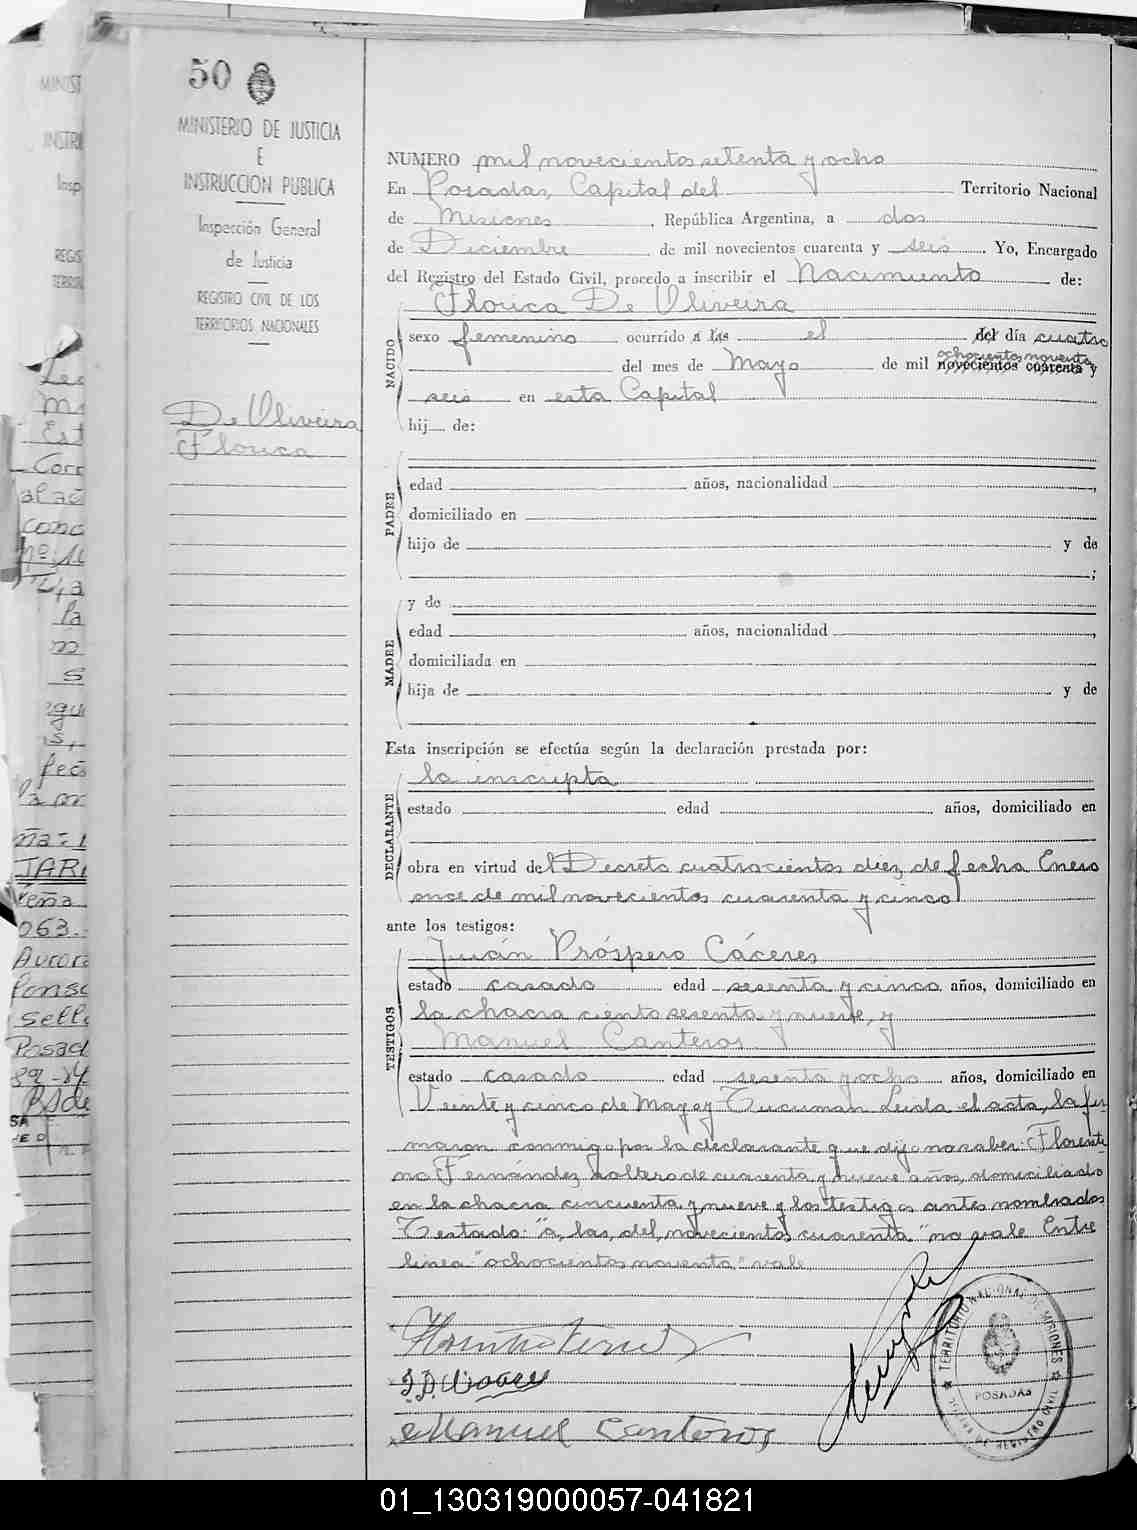 50
MINISTERIO DE JUSTICIA
E
INSTRUCCION PUBLICA
Inspección General
de Justicia
REGISTRO CIVIL DE LOS
TERRITORIOS NACIONALES
De Oliveira
Florica
NUMERO mil novecientos setenta y ocho
En Posadas, Capital del Territorio Nacional
de Misiones, República Argentina, a dos
de Diciembre de mil novecientos cuarenta y seis. Yo, Encargado
del Registro del Estado Civil, procedo a inscribir el Nacimiento de:
Florica De Oliveira
NACIDO
sexo femenino ocurrido a las el del día cuatro
ochocientos noventa
del mes de Mayo de mil novecientos cuarenta y
seis en esta Capital
hij de:
PADRE
edad años, nacionalidad ,
domiciliado en
hijo de y de
;
MADRE
y de
edad años, nacionalidad ,
domiciliada en
hija de y de
Esta inscripción se efectúa según la declaración prestada por:
la inscripta
DECLARANTE
estado edad años, domiciliado en
obra en virtud del Decreto cuatrocientos diez de fecha Enero
once de mil novecientos cuarenta y cinco
ante los testigos:
TESTIGOS
Juán Próspero Cáceres
estado casado edad sesenta y cinco años, domiciliado en
la chacra ciento sesenta y nueve, y
Manuel Canteros
estado casado edad sesenta y ocho años, domiciliado en
Veinte y cinco de Mayo y Tucuman Leida el acta, la fir
maron conmigo por la declarante que dijo no saber Florenti
no Fernández soltero de cuarenta y nueve años, domiciliado
en la chacra cincuenta y nueve y los testigos antes nombrados
Testado: "a, las, del, novecientos cuarenta" no vale Entre
linea "ochocientos noventa" vale
Manuel Canteros
TERRITORIO NACIONAL DE MISIONES
POSADAS
01_130319000057-041821